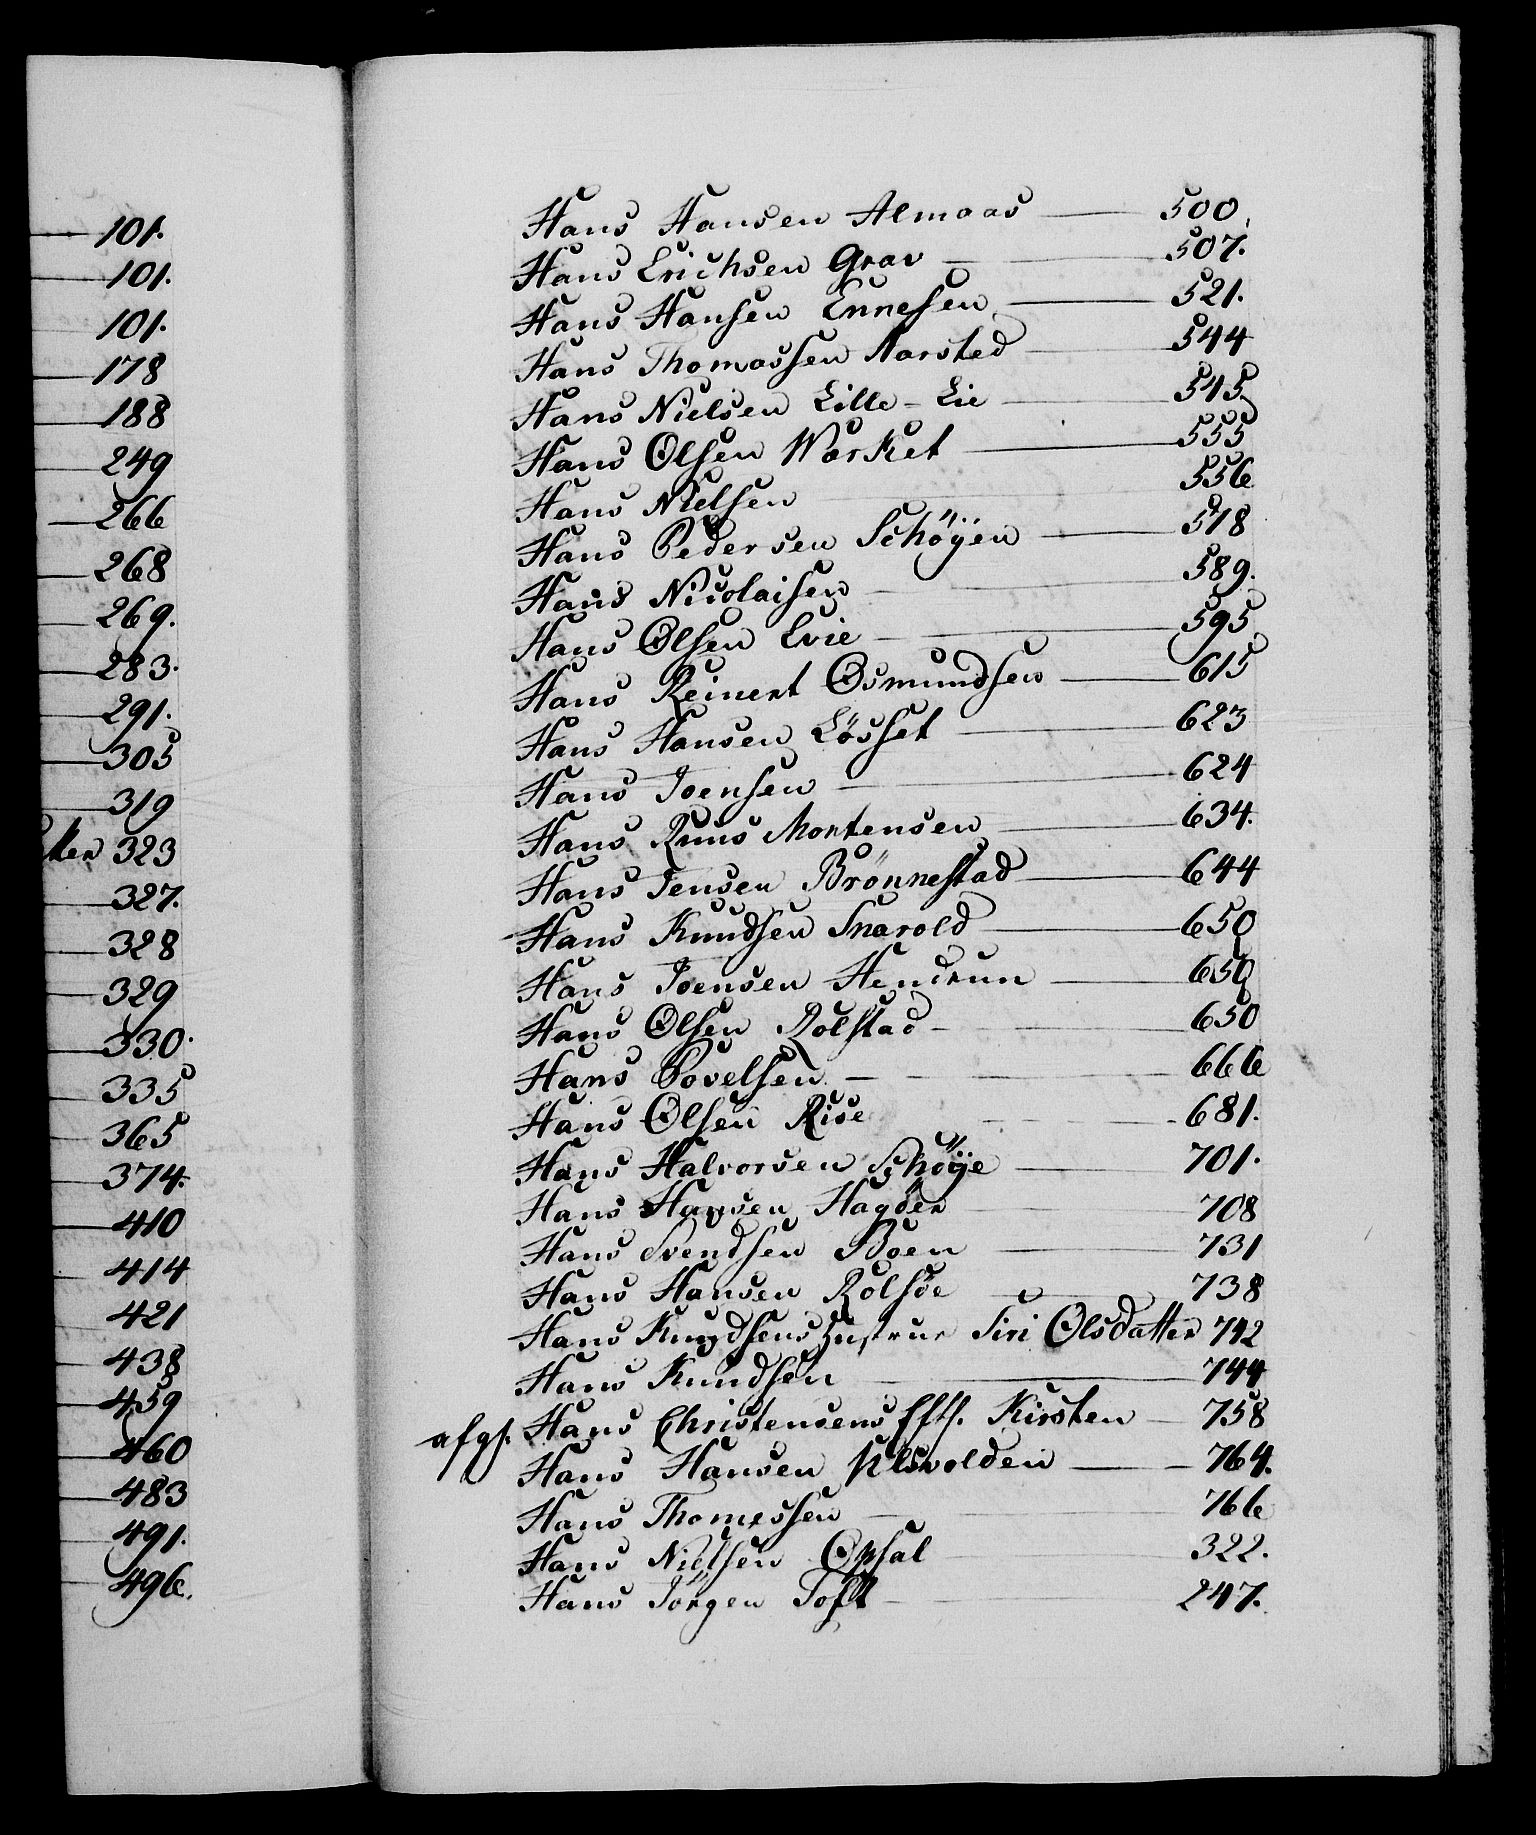 101.
101.
101.
178
188
249
266
268
269.
283.
291.
305
319
323
327.
328
329
330.
335
365
374.
410
414
421
438
459
460
483
491.
496.
Hans Hansen Almaas — 500
Hans Erichsen Grav — 507.
Hans Hansen Ennesen — 521.
Hans Thomassen Narsted — 544
Hans Nielsen Lille-Lie — 545
Hans Olsen Warket — 555
Hans Nielsen — 556
Hans Pedersen Schöÿen — 578
Hans Nicolaisen — 589.
Hans Olsen Evie — 595
Hans Reinert Osmundsen — 615
Hans Hansen Lösset — 623
Hans Joensen — 624
Hans Ruus Mortensen — 634.
Hans Jensen Brönnestad — 644
Hans Knudsen Snarold — 650
Hans Joensen Hendrun — 650
Hans Olsen Rolstad — 650
Hans Povelsen — 666
Hans Olsen Rise — 681.
Hans Halvorsen Schöÿe — 701.
Hans Hansen Hagöen — 708
Hans Svendsen Boen — 731
Hans Hansen Rolsöe — 738
Hans Knudsens Hustrue Siri Olsdatter 742
Hans Knudsen — 744
afg. Hans Christensens Eft. Kirsten — 758
Hans Hansen Ulsvolden — 764.
Hans Thomessen — 766
Hans Nielsen Opsal — 322.
Hans Jörgen Toft — 247.